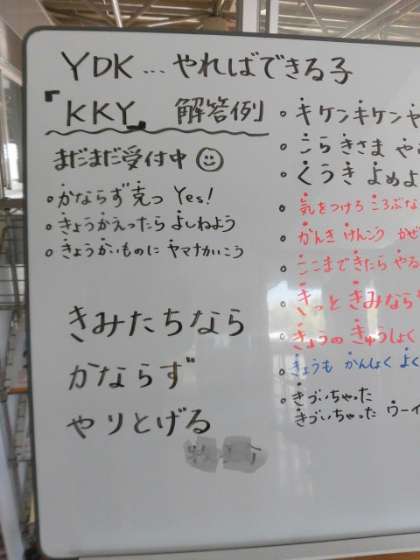 YDK…やればできる子
『KKY』 解答例
まだまだ受付中
・かならず克つ Yes!
・きょうかえったら よしねよう
・きょうかいものに ヤマナかいこう
きみたちなら
かならず
やりとげる
・キケンキケンヤ
・こら きさま や
・くうき よめよ
・気をつけろ ころぶな
・かんき けんこう かぜ
・ここまできたら やる
・きっと きみなら
・きょうの きゅうしょく
・きょうも かんしょく よく
・きづいちゃった
きづいちゃった ウーイ